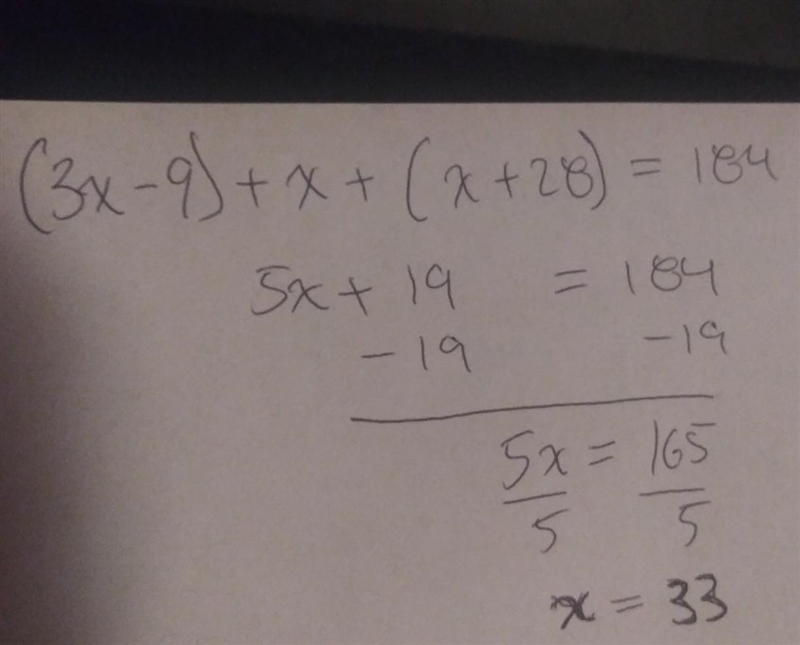 (3x-9)+x+(x+28)=184
5x+19 =184
-19 -19
5x = 165
5 5
x = 33